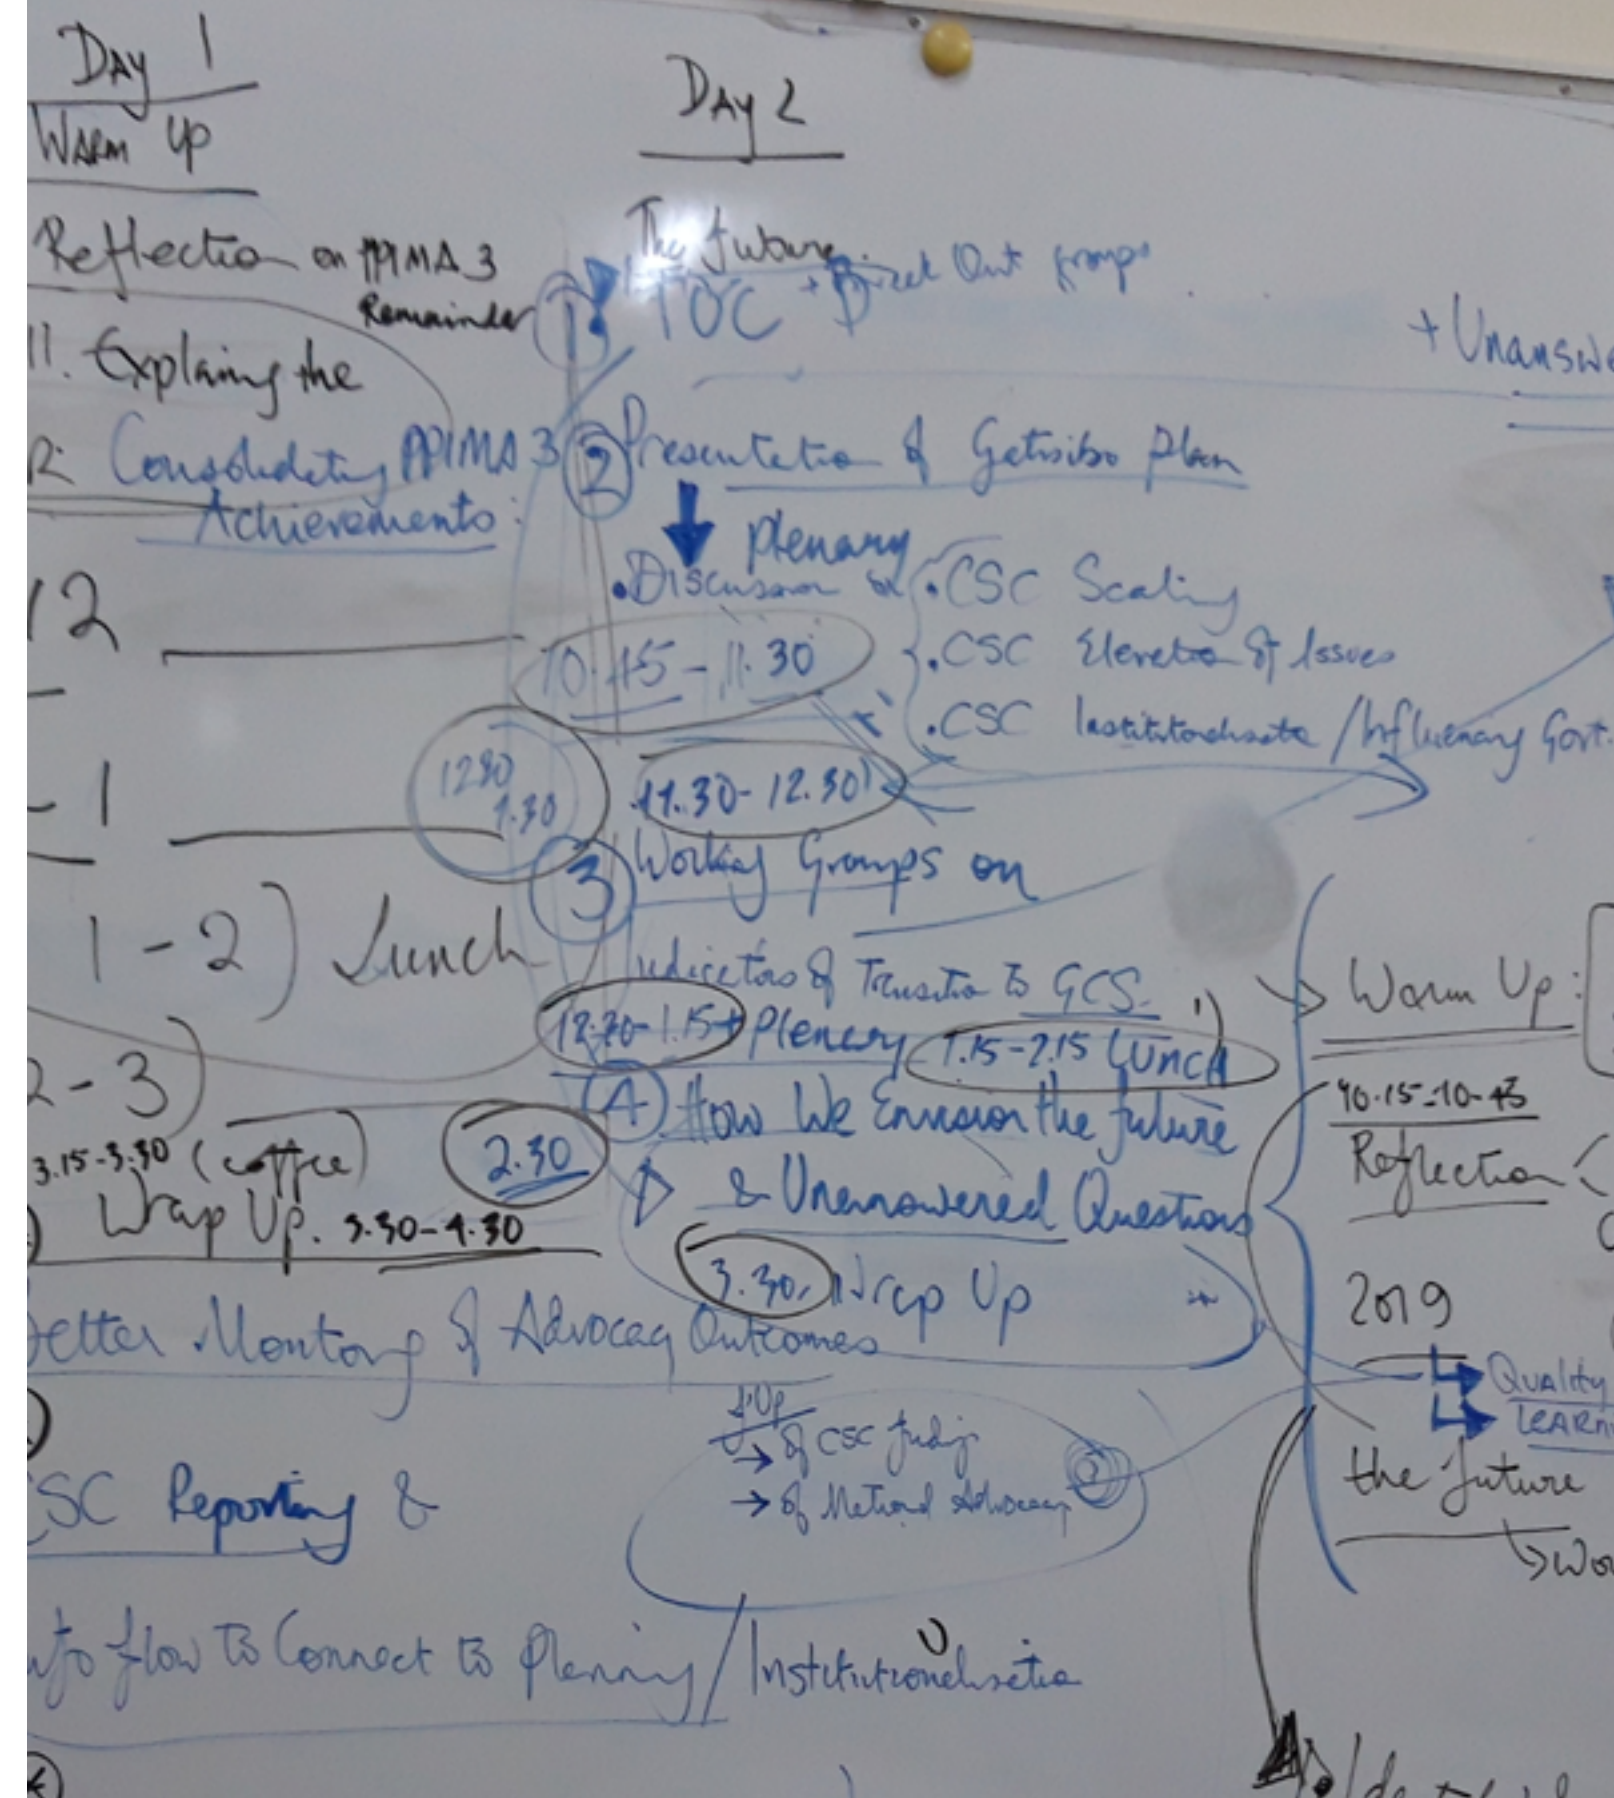 DAY 1
WARM UP
Reflection on PPIMA 3
Remainder
II. Explaining the
R: Consolidating PPIMA 3
Achievements:
12
- 1
1 - 2) Lunch
2 - 3)
3.15-3.30 (coffee)
Wrap Up. 3.30-4.30
Better Monitoring of Advocacy Outcomes
CSC Reporting &
Info flow to Connect to Planning / Institutionalisation
DAY 2
The future
1. TOC + Break Out groups
+ Unanswe
2 Presentation of Gatsibo Plan
Plenary
• Discussion of
• CSC Scaling
• CSC Elevation of Issues
• CSC Institutionalisation / Influencing Govt.
10.45 - 11.30
1230
1.30
11.30 - 12.30
3 Working Groups on
Indicators of Transition to GCS
12.30-1.15 + Plenary 1.15-2.15 LUNCH
4. How We Envision the future
2.30
& Unanswered Questions
3.30. Wrap Up
f.Up
→ of CSC findings
→ of National Advocacy
Warm Up:
10.15-10-45
Reflection
2019
QUALITY
LEARN
the future
→ Wor